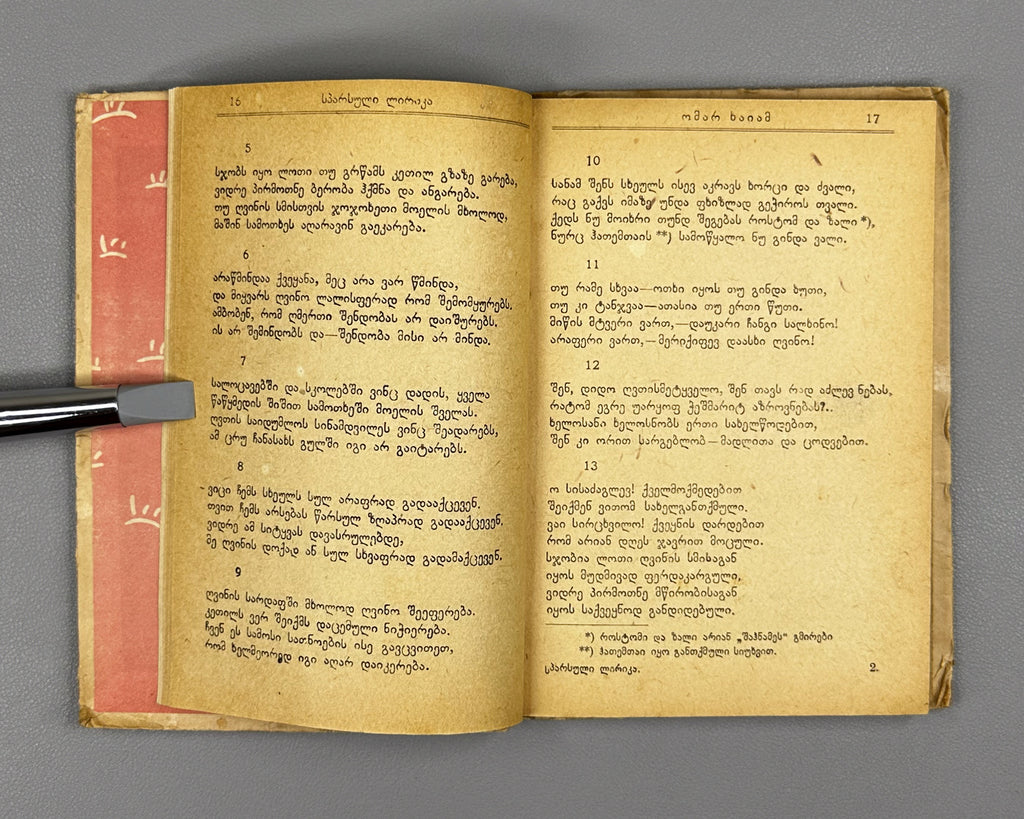 16 სპარსული ლირიკა
5
სჯობს იყო ლოთი თუ გრწამს კეთილ გზაზე გარება,
ვიდრე პირმოთნე ბერობა ჰქმნა და ანგარება.
თუ ღვინის სმისთვის ჯოჯოხეთი მოელის მხოლოდ,
მაშინ სამოთხეს აღარავინ გაეკარება.
6
არაწმინდაა ქვეყანა, მეც არა ვარ წმინდა,
და მიყვარს ღვინო ლალისფერად რომ შემომყურებს.
ამბობენ, რომ ღმერთი შენდობას არ დაიშურებს.
ის არ შემინდობს და—შენდობა მისი არ მინდა.
7
სალოცავებში და სკოლებში ვინც დადის, ყველა
წაწყმედის შიშით სამოთხეში მოელის შველას.
ღვთის საიდუმლოს სინამდვილეს ვინც შეადარებს,
ამ ცრუ ჩანასახს გულში იგი არ გაიტარებს.
8
ვიცი ჩემს სხეულს სულ არაფრად გადააქცევენ.
თვით ჩემს არსებას წარსულ ზღაპრად გადააქცევენ.
ვიდრე ამ სიტყვას დავასრულებდე,
მე ღვინის დოქად ან სულ სხვაფრად გადამაქცევენ.
9
ღვინის სარდაფში მხოლოდ ღვინო შეეფერება.
კეთილს ვერ შეიქმს დაცემული ნიჭიერება.
ჩვენ ეს სამოსი სათნოების ისე გავცვითეთ,
რომ ხელმეორედ იგი აღარ დაიკერება.
ომარ ხაიამ 17
10
სანამ შენს სხეულს ისევ აკრავს ხორცი და ძვალი,
რაც გაქვს იმაზე უნდა ფხიზლად გეჭიროს თვალი.
ქედს ნუ მოიხრი თუნდ შეგებას როსტომ და ზალი *),
ნურც ჰათემთაის **) სამოწყალო ნუ გინდა ვალი.
11
თუ რამე სხვაა—ოთხი იყოს თუ გინდა ხუთი,
თუ კი ტანჯვაა—ათასია თუ ერთი წუთი.
მიწის მტვერი ვართ,—დაუკარი ჩანგი სალხინო!
არაფერი ვართ,—მერიქიფევ დაასხი ღვინო!
12
შენ, დიდო ღვთისმეტყველო, შენ თავს რად აძლევ ნებას,
რატომ ეგრე უარყოფ ჭეშმარიტ აზროვნებას?..
ხელოსანი ხელოსნობს ერთი სახელწოდებით,
შენ კი ორით სარგებლობ—მადლითა და ცოდვებით.
13
ო სისაძაგლევ! ქველმოქმედებით
შეიქმნენ ვითომ სახელგანთქმული.
ვაი სირცხვილო! ქვეყნის დარდებით
რომ არიან დღეს ჯავრით მოცული.
სჯობია ლოთი ღვინის სმისაგან
იყოს მუდმივად ფერდაკარგული,
ვიდრე პირმოთნე მწირობისაგან
იყოს საქვეყნოდ განდიდებული.
*) როსტომი და ზალი არიან „შაჰნამეს“ გმირები
**) ჰათემთაი იყო განთქმული სიუხვით.
სპარსული ლირიკა. 2.